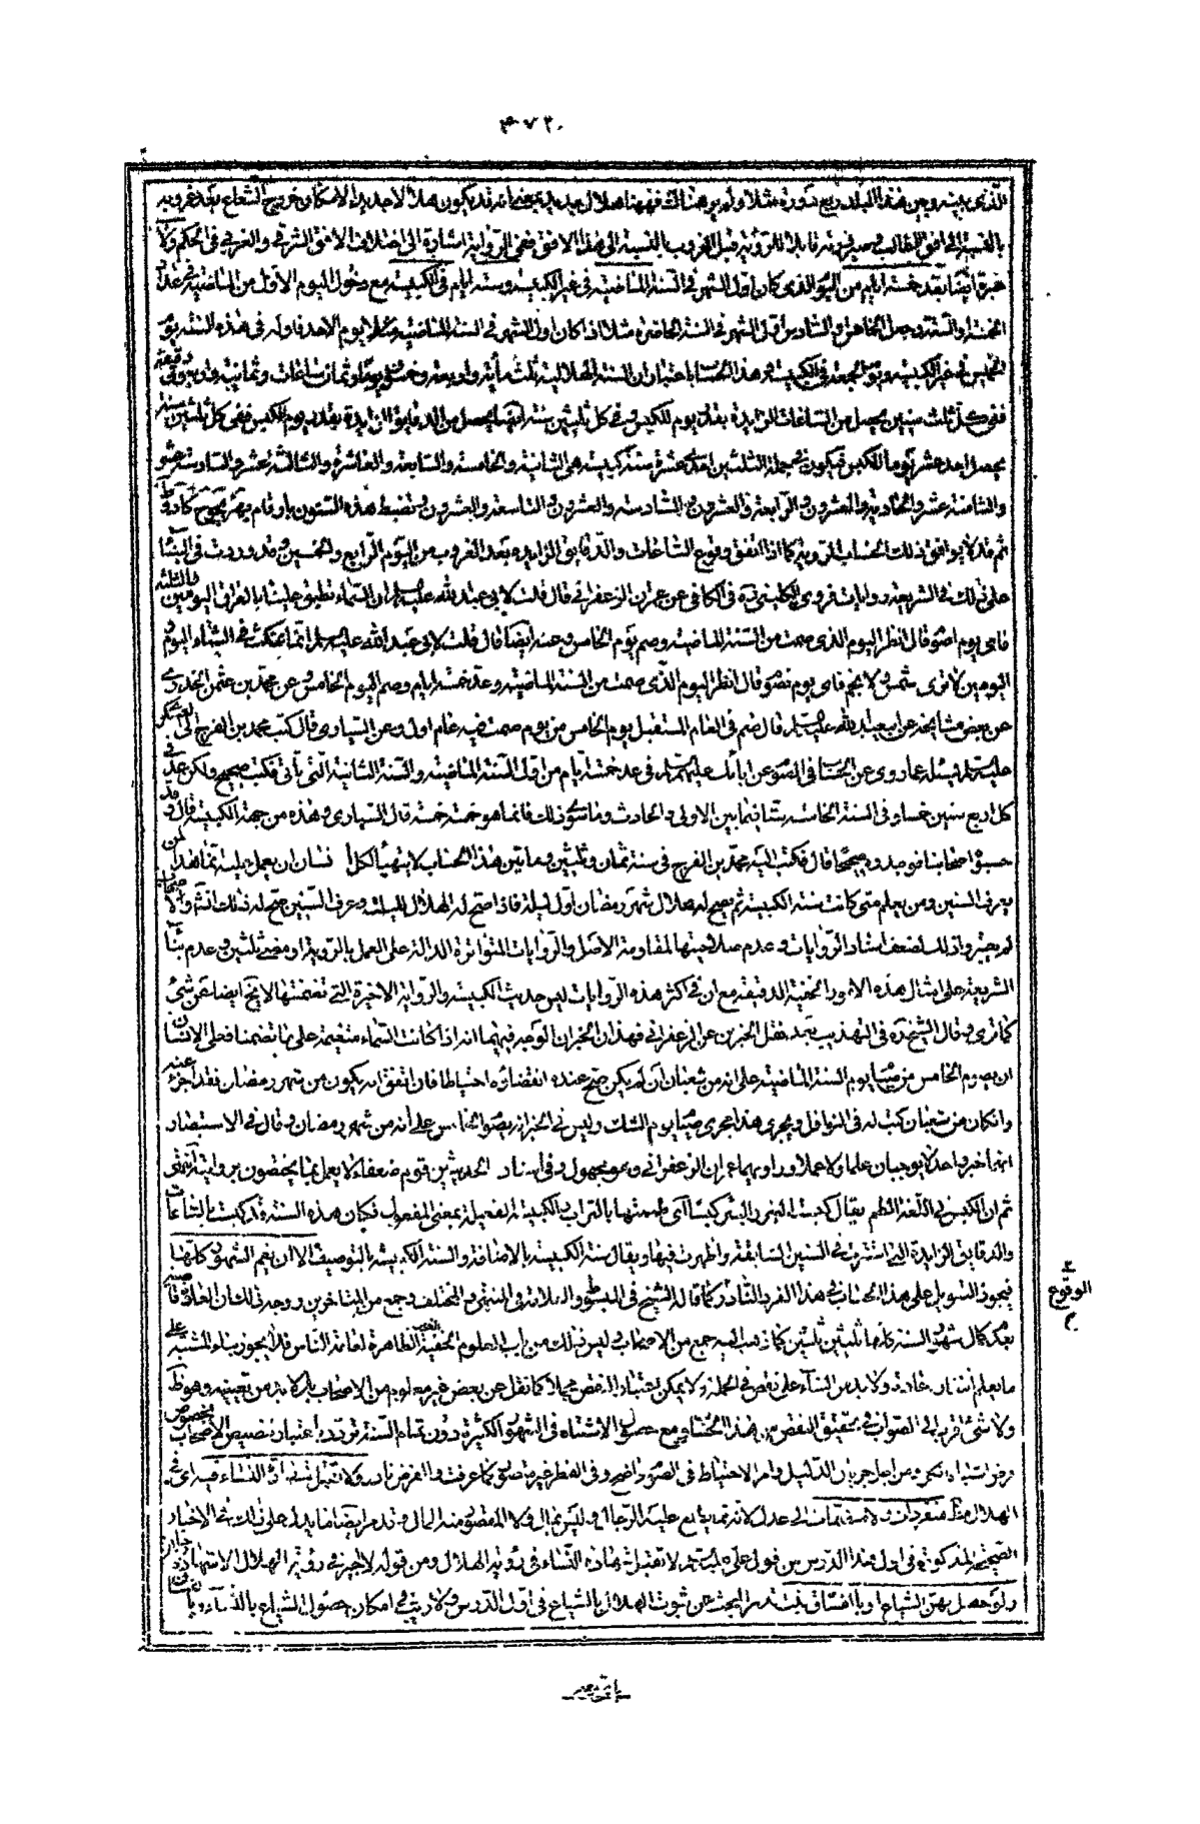 ٤٧٢
الذي بينه وبين هذا البلد ربع دورة مثلا ولم ير هناك فههنا هلال جديد بمعنى انه قد يكون هلالا جديدا لامكان خروج الشعاع بعد غروبه
بالنسبة الى افق المغالب وصيرورته قابلا للرؤية قبل الغروب بالنسبة الى هذا الافق ففي الرواية اشارة الى اختلاف الافق الشرقي والغربي في الحكم ولا
عبرة ايضا بعد خمسة ايام من اليوم الذي كان اول الشهر في السنة الماضية في غير الكبيسة وستة ايام في الكبيسة مع دخول اليوم الاول من الماضية في عدد
الخمسة او الستة وجعل الخامس او السادس اول الشهر في السنة الحاضرة مثلا اذا كان اول الشهر في السنة الماضية مثلا يوم الاحد فاوله في هذه السنة يوم
الخميس في غير الكبيسة ويوم الجمعة في الكبيسة وهذا الحساب باعتبار ان السنة الهلالية ثلث مأية واربعة وخمسون يوما وثمان ساعات وثمانية واربعون دقيقة
ففي كل ثلث سنين يحصل من الساعات الزايدة بقدر يوم للكبس وفي كل ثلثين سنة ايضا يحصل من الدقايق الزايدة بقدر يوم للكبس ففي كل ثلثين سنة
يحصل احد عشر يوما للكبس فيكون في جملة الثلثين احدى عشرة سنة كبيسة هي الثانية والخامسة والسابعة والعاشرة والثالثة عشر والسادسة عشر
والثامنة عشر والحادية والعشرون والرابعة والعشرون والسادسة والعشرون والتاسعة والعشرون وتضبط هذه السنون بارقام بهزيجوح كادوط
ثم قد لا يوافق ذلك الحساب للرؤية كما اذا اتفق وقوع الساعات والدقايق الزايدة بعد الغروب من اليوم الرابع والخمسين وقد وردت في البناء
على ذلك في الشريعة روايات فروى الكليني ره في الكافي عن عمران الزعفراني قال قلت لابي عبد الله عليه السلم ان السماء تطبق علينا بالعراق اليومين والثلثة
فاي يوم نصوم قال انظر اليوم الذي صمت من السنة الماضية وصم يوم الخامس وعنه ايضا قال قلت لابي عبد الله عليه السلم انما نمكث في الشتاء اليوم و
اليومين لا نرى شمس ولا نجم فاي يوم نصوم قال انظر اليوم الذي صمت من السنة الماضية وعد خمسة ايام وصم اليوم الخامس وعن محمد بن عثمن الخدري
عن بعض مشايخه عن ابي عبد الله عليه السلم قال صم في العام المستقبل يوم الخامس من يوم صمت فيه عام اول وعن السياري قال كتب محمد بن الفرج الى العسكري
عليه السلم يسئله عما روى عن الحساب في الصوم عن ابائك عليهم السلم في عد خمسة ايام من اول السنة الماضية والسنة الثانية التي تأتي فكتب صحيح ولكن عد في
كل اربع سنين خمسا وفي السنة الخامسة ستا فيما بين الاولى والحادث وما سوى ذلك فانما هو خمسة خمسة قال السياري وهذه من جهة الكبيسة قال وقد
حسبه اصحابنا فوجدوه صحيحا قال فكتب اليه محمد بن الفرج في سنة ثمان وثلثين ومأتين هذا الحساب لا يتهيأ لكل انسان ان يعمل عليه انما هذا لمن
يعرف السنين ومن يعلم متى كانت سنة الكبيسة ثم يصح له هلال شهر رمضان اول ليلة فاذا صح له الهلال لليلته وعرف السنين صح له ذلك انشاء
لم يعتبروا ذلك لضعف اسناد الروايات وعدم صلاحيتها لمقاومة الاصل والروايات المتواترة الدالة على العمل بالرؤية او مضى ثلثين وعدم بناء
الشريعة على امثال هذه الامور الخفية الدقيقة مع ان في اكثر هذه الروايات ليس حديث الكبيسة والرواية الاخيرة التي تضمنتها لا يخ ايضا عن شيء
كما ترى وقال الشيخ ره في التهذيب بعد نقل الخبرين عن الزعفراني فهذان الخبران الوجه فيهما انه اذا كانت السماء متغيمة على ما تضمنا فعلى الانسان
ان يصوم الخامس من صيام يوم السنة الماضية على انه من شعبان ان لم يكن صح عنده انقضاؤه احتياطا فان اتفق انه يكون من شهر رمضان فقد اجزء عنه
وان كان من شعبان كتب له في النوافل ويجري هذا مجرى صيام يوم الشك وليس في الخبر انه يصوم الخامس على انه من شهر رمضان وقال في الاستبصار
انها خبر واحد لا يوجبان علما ولا عملا وراويهما عمران الزعفراني وهو مجهول وفي اسناد الحديثين قوم ضعفاء لا يعمل بما يختصون بروايته انتهى
ثم ان الكبس في اللغة الطم يقال كبست النهر والبئر كبسا اي طممتها بالتراب والكبيسة الفعيلة بمعنى المفعول فكان هذه السنة قد كبست بالساعات
والدقايق الزايدة التي استترت في السنين السابقة وظهرت فيها ويقال سنة الكبيسة بالاضافة والسنة الكبيسة بالتوصيف الا ان يغم الشهور كلها
فيجوز التعويل على هذا الحساب في هذا الفرد النادر كما قاله الشيخ في المبسوط والعلامة في المنتهى والمختلف وجمع من المتاخرين ووجه ذلك ان العادة قاضية
بعدم كمال شهور السنة كلها ثلثين ثلثين كما ذهب اليه جمع من الاصحاب وليس ذلك من باب العلوم الخفية الغير الظاهرة لعامة الناس فلا يجوز بناء المشتبه على
ما يعلم انتفاؤه عادة ولا بد من البناء على نقص في الجملة ولا يمكن اعتبار النقص مجملا كما نقل عن بعض غير معلوم من الاصحاب بل لا بد من تعيينه وهو ظ
ولا شيء اقرب الى الصواب في تحقيق النقص من هذا الحساب ومع حصول الاشتباه في الشهور الكثيرة دون تمام السنة تردد باعتبار تخصيص الاصحاب بخصوص
الهلال منفردات ولا منضمات الى عدل لانه مما يطلع عليه الرجال وليس بمال ولا المقصود منه المال وقد مر ايضا ما يدل على ذلك في الاخبار
الصحيحة المذكورة في اول هذا الدرس من قول علي عليه السلم لا تقبل شهادة النساء في رؤية الهلال ومن قوله لا اجيز في رؤية الهلال الا شهادة رجلين
ولو حصل بهن الشياع او بالفساق ثبت قد مر البحث عن ثبوت الهلال بالشياع في اول الدرس ولا ريب في امكان حصول الشياع بالنساء
الوقوع